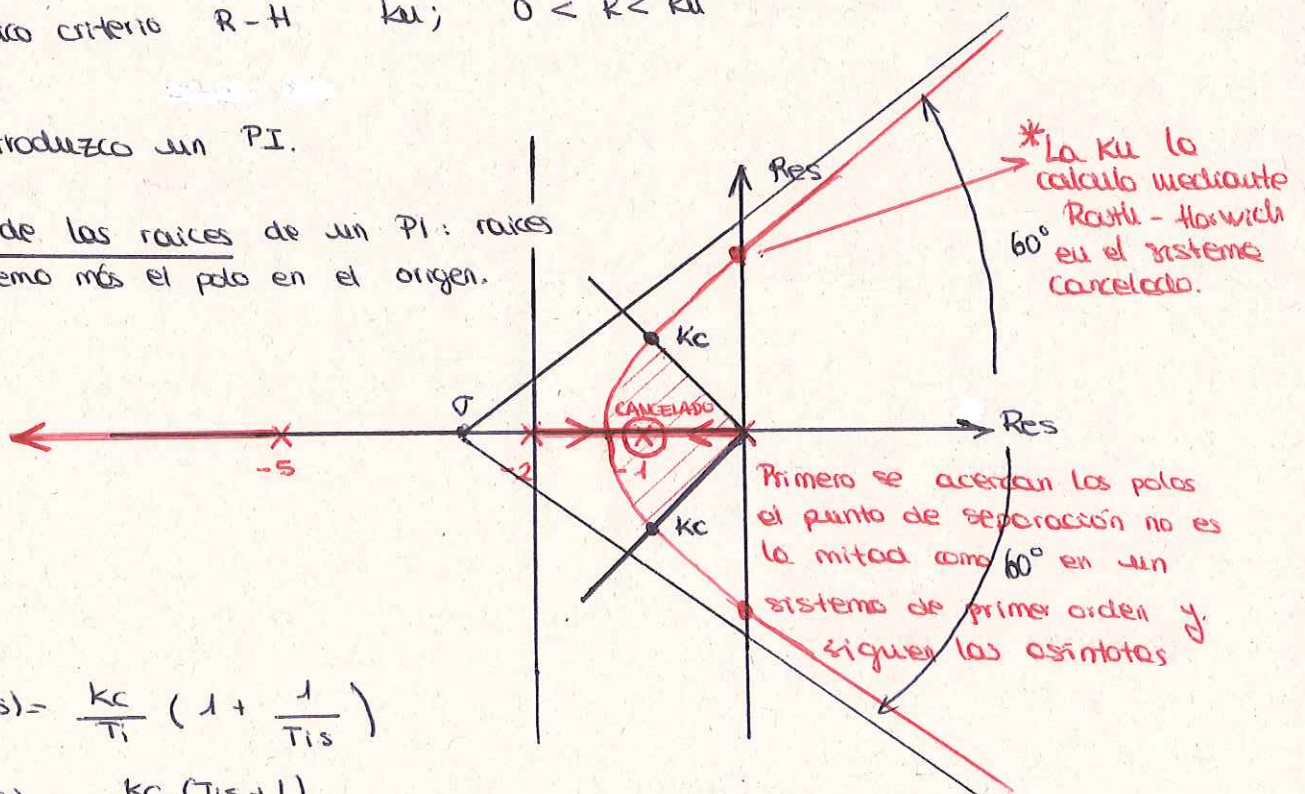 ico criterio R-H Ku; 0 < K < Ku
troduzco un PI.
de las raices de un PI: raices
emo más el polo en el origen.
Res
*La Ku lo
calculo mediante
Routh-Horwich
en el sistema
cancelado.
60°
Kc
σ
CANCELADO
Res
-5
-2
-1
Kc
Primero se acercan los polos
el punto de separación no es
la mitad como en un
60°
sistema de primer orden y
siguen las asíntotas
s)= Kc/Ti (1 + 1/Tis)
Kc (Tis+1)